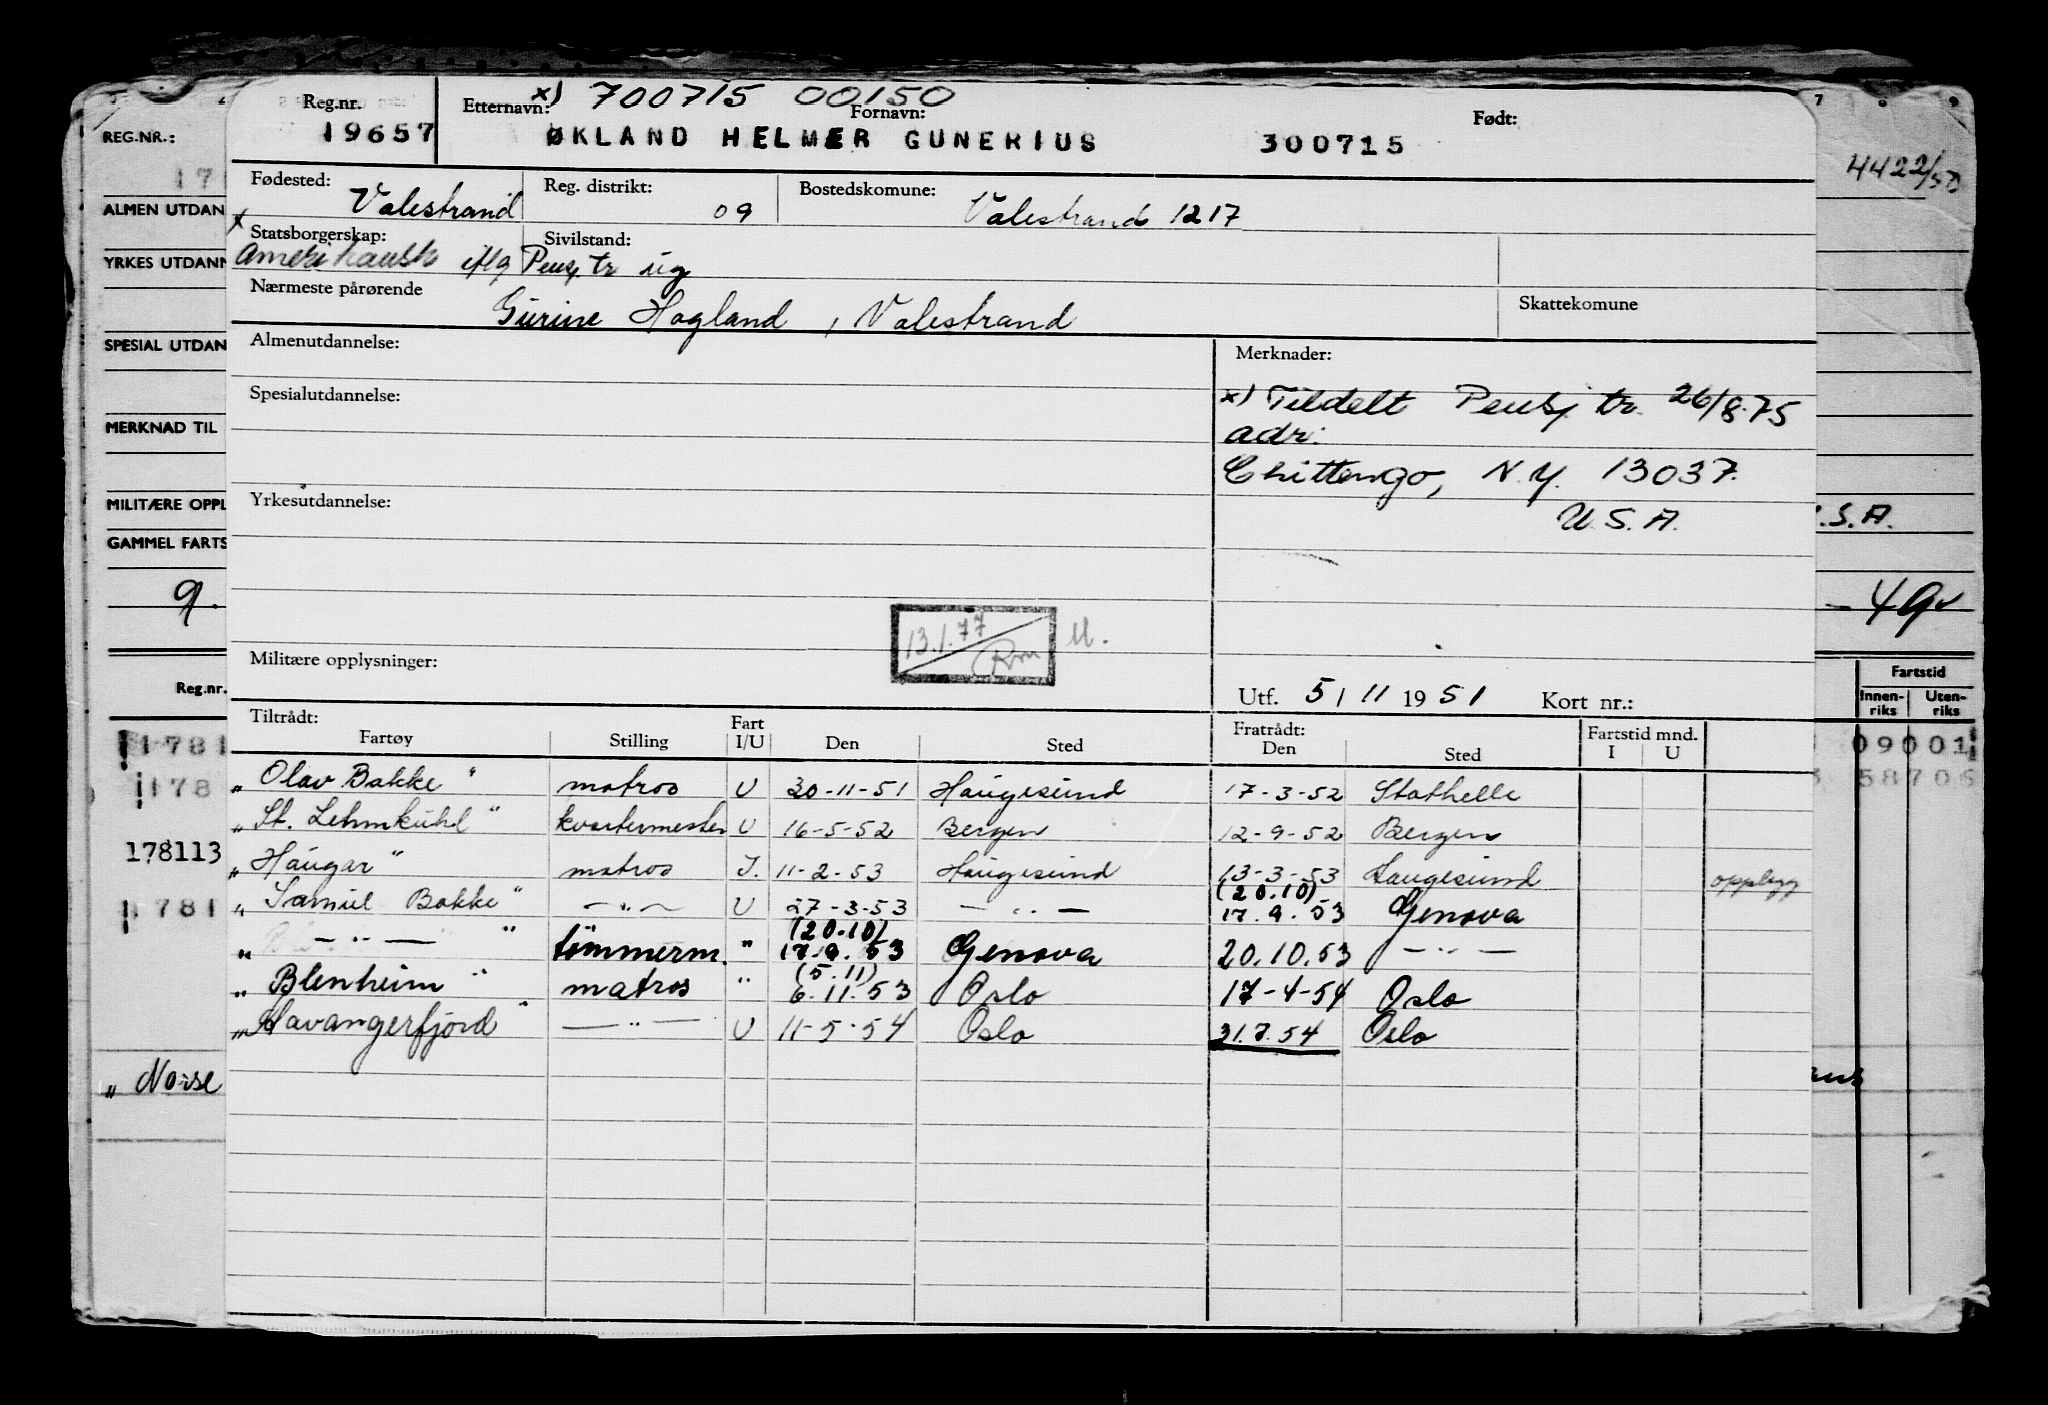 x) 700715 00150
Reg.nr. Etternavn: Fornavn: Født:
19657 ØKLAND HELMER GUNERIUS 300715
Fødested: Valestrand Reg. distrikt: 09 Bostedskomune: Valestrand 1217
x Statsborgerskap: Amerikansk Sivilstand: Pensj tr ug
Nærmeste pårørende Gurine Hogland, Valestrand Skattekomune
Almenutdannelse: Merknader:
Spesialutdannelse: x) Tildelt Pensj tr. 26/8-75
adr:
Chittengo, N.Y. 13037.
Yrkesutdannelse: U.S.A.
13.1.77 Rm U.
Militære opplysninger:
Utf. 5/11 1951 Kort nr.:
Tiltrådt: Fart Fratrådt: Fartstid mnd.
Fartøy Stilling I/U Den Sted Den Sted I U
„Olav Bakke" matros U 30-11-51 Haugesund 17-3-52 Stathelle
„St. Lehmkuhl" kvartermester U 16-5-52 Bergen 12-9-52 Bergen
„Haugar" matros I. 11-2-53 Haugesund 13-3-53 Haugesund opplegg
„Samuel Bakke" —„— U 27-3-53 —„— (20.10) 17.9.53 Genova
„ —„— " tömmerm. " (20.10) 17.9.53 Genova 20.10.53 —„—
„Blenheim" matros " (5.11) 6.11.53 Oslo 17-4-54 Oslo
„Stavangerfjord" —„— U 11-5-54 Oslo 31.7.54 Oslo
REG.NR.:
17
ALMEN UTDAN
YRKES UTDANN
SPESIAL UTDAN
MERKNAD TIL
MILITÆRE OPPL
GAMMEL FARTS
9.
Reg.nr.
1781
178
178113
1781
„Norse
7 8 9
4422/50
.S.A.
Fartstid
Innen-riks Uten-riks
09001
58706